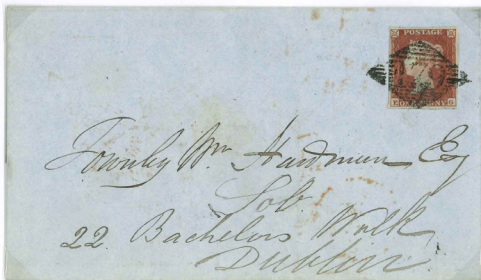 POSTAGE
Townly Wm Hardman Esq
Sol.
22 Bachelors Walk
Dublin